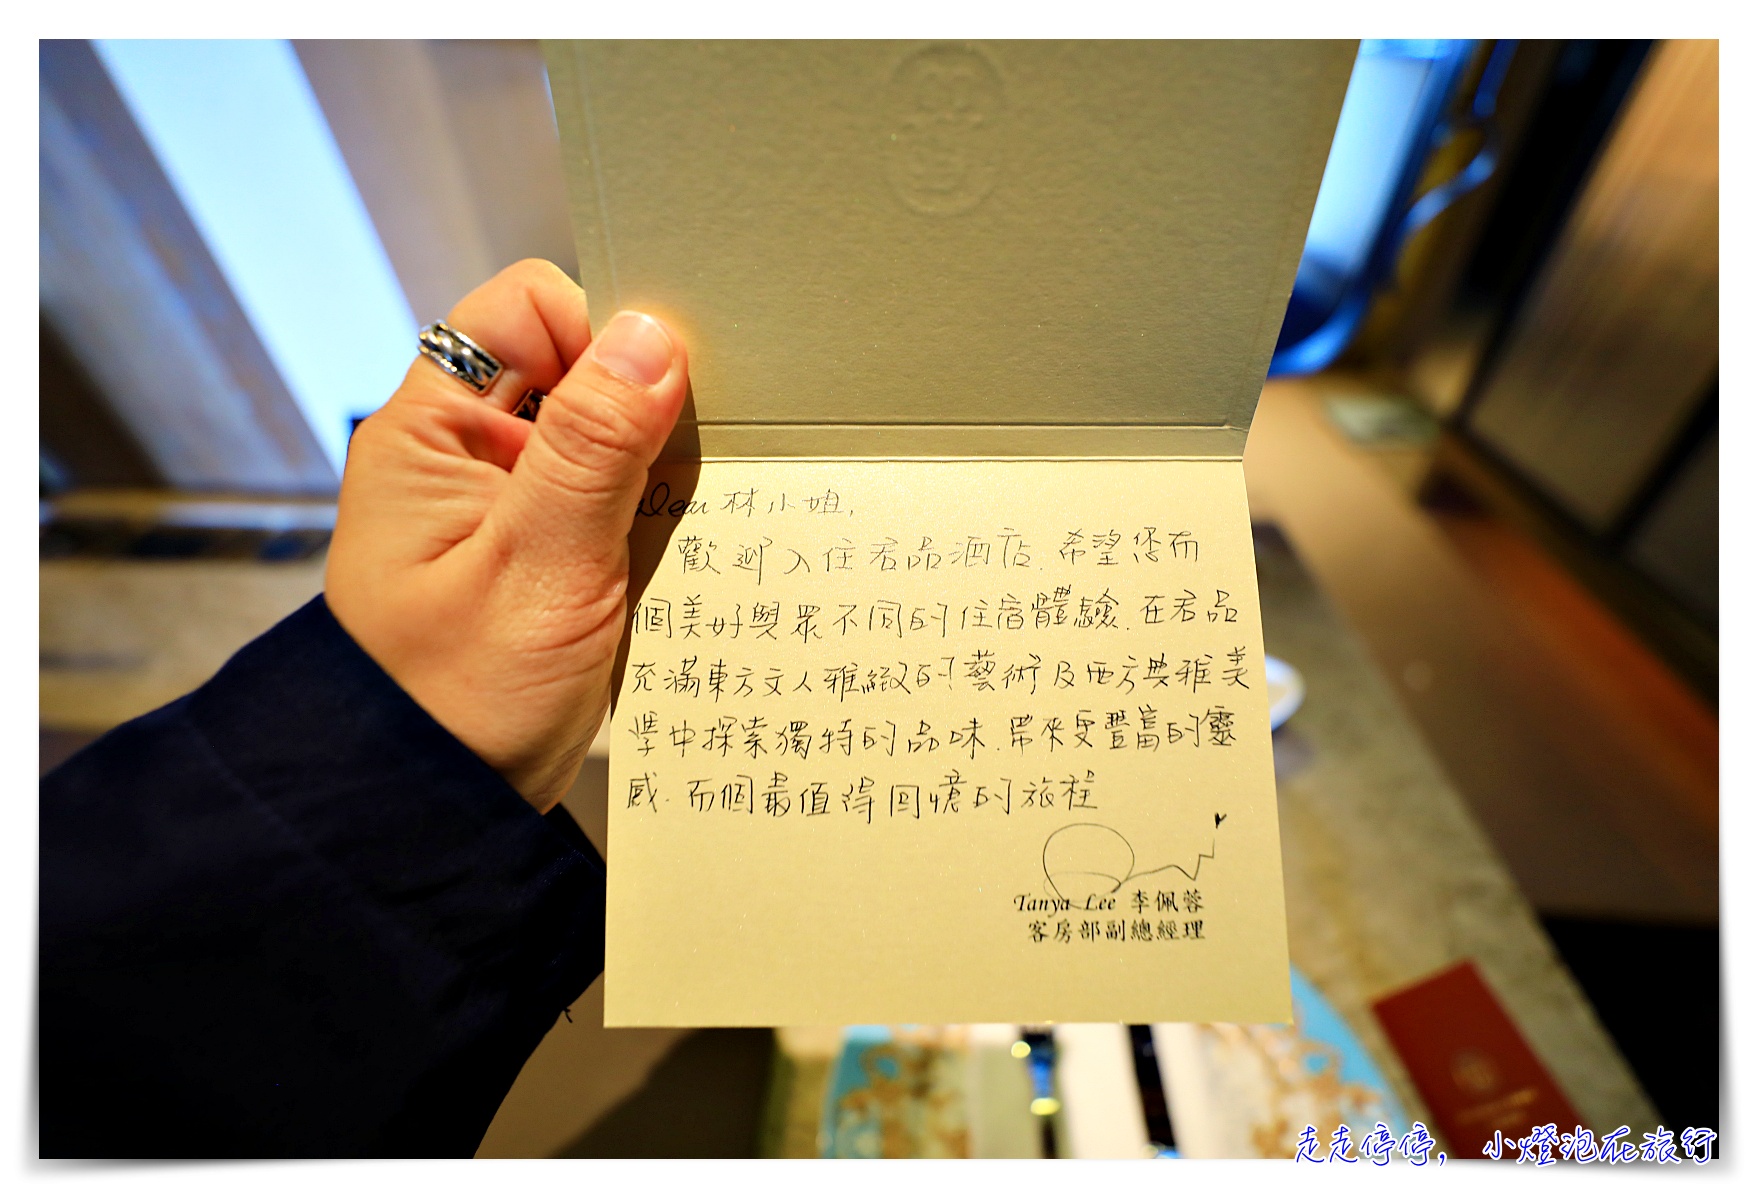 Dear 林小姐,
歡迎入住君品酒店.希望您有
個美好與眾不同的住宿體驗.在君品
充滿東方文人雅緻的藝術及西方典雅美
學中探索獨特的品味.帶來更豐富的靈
感.有個最值得回憶的旅程
Tanya Lee 李佩蓉
客房部副總經理
走走停停，小燈泡在旅行